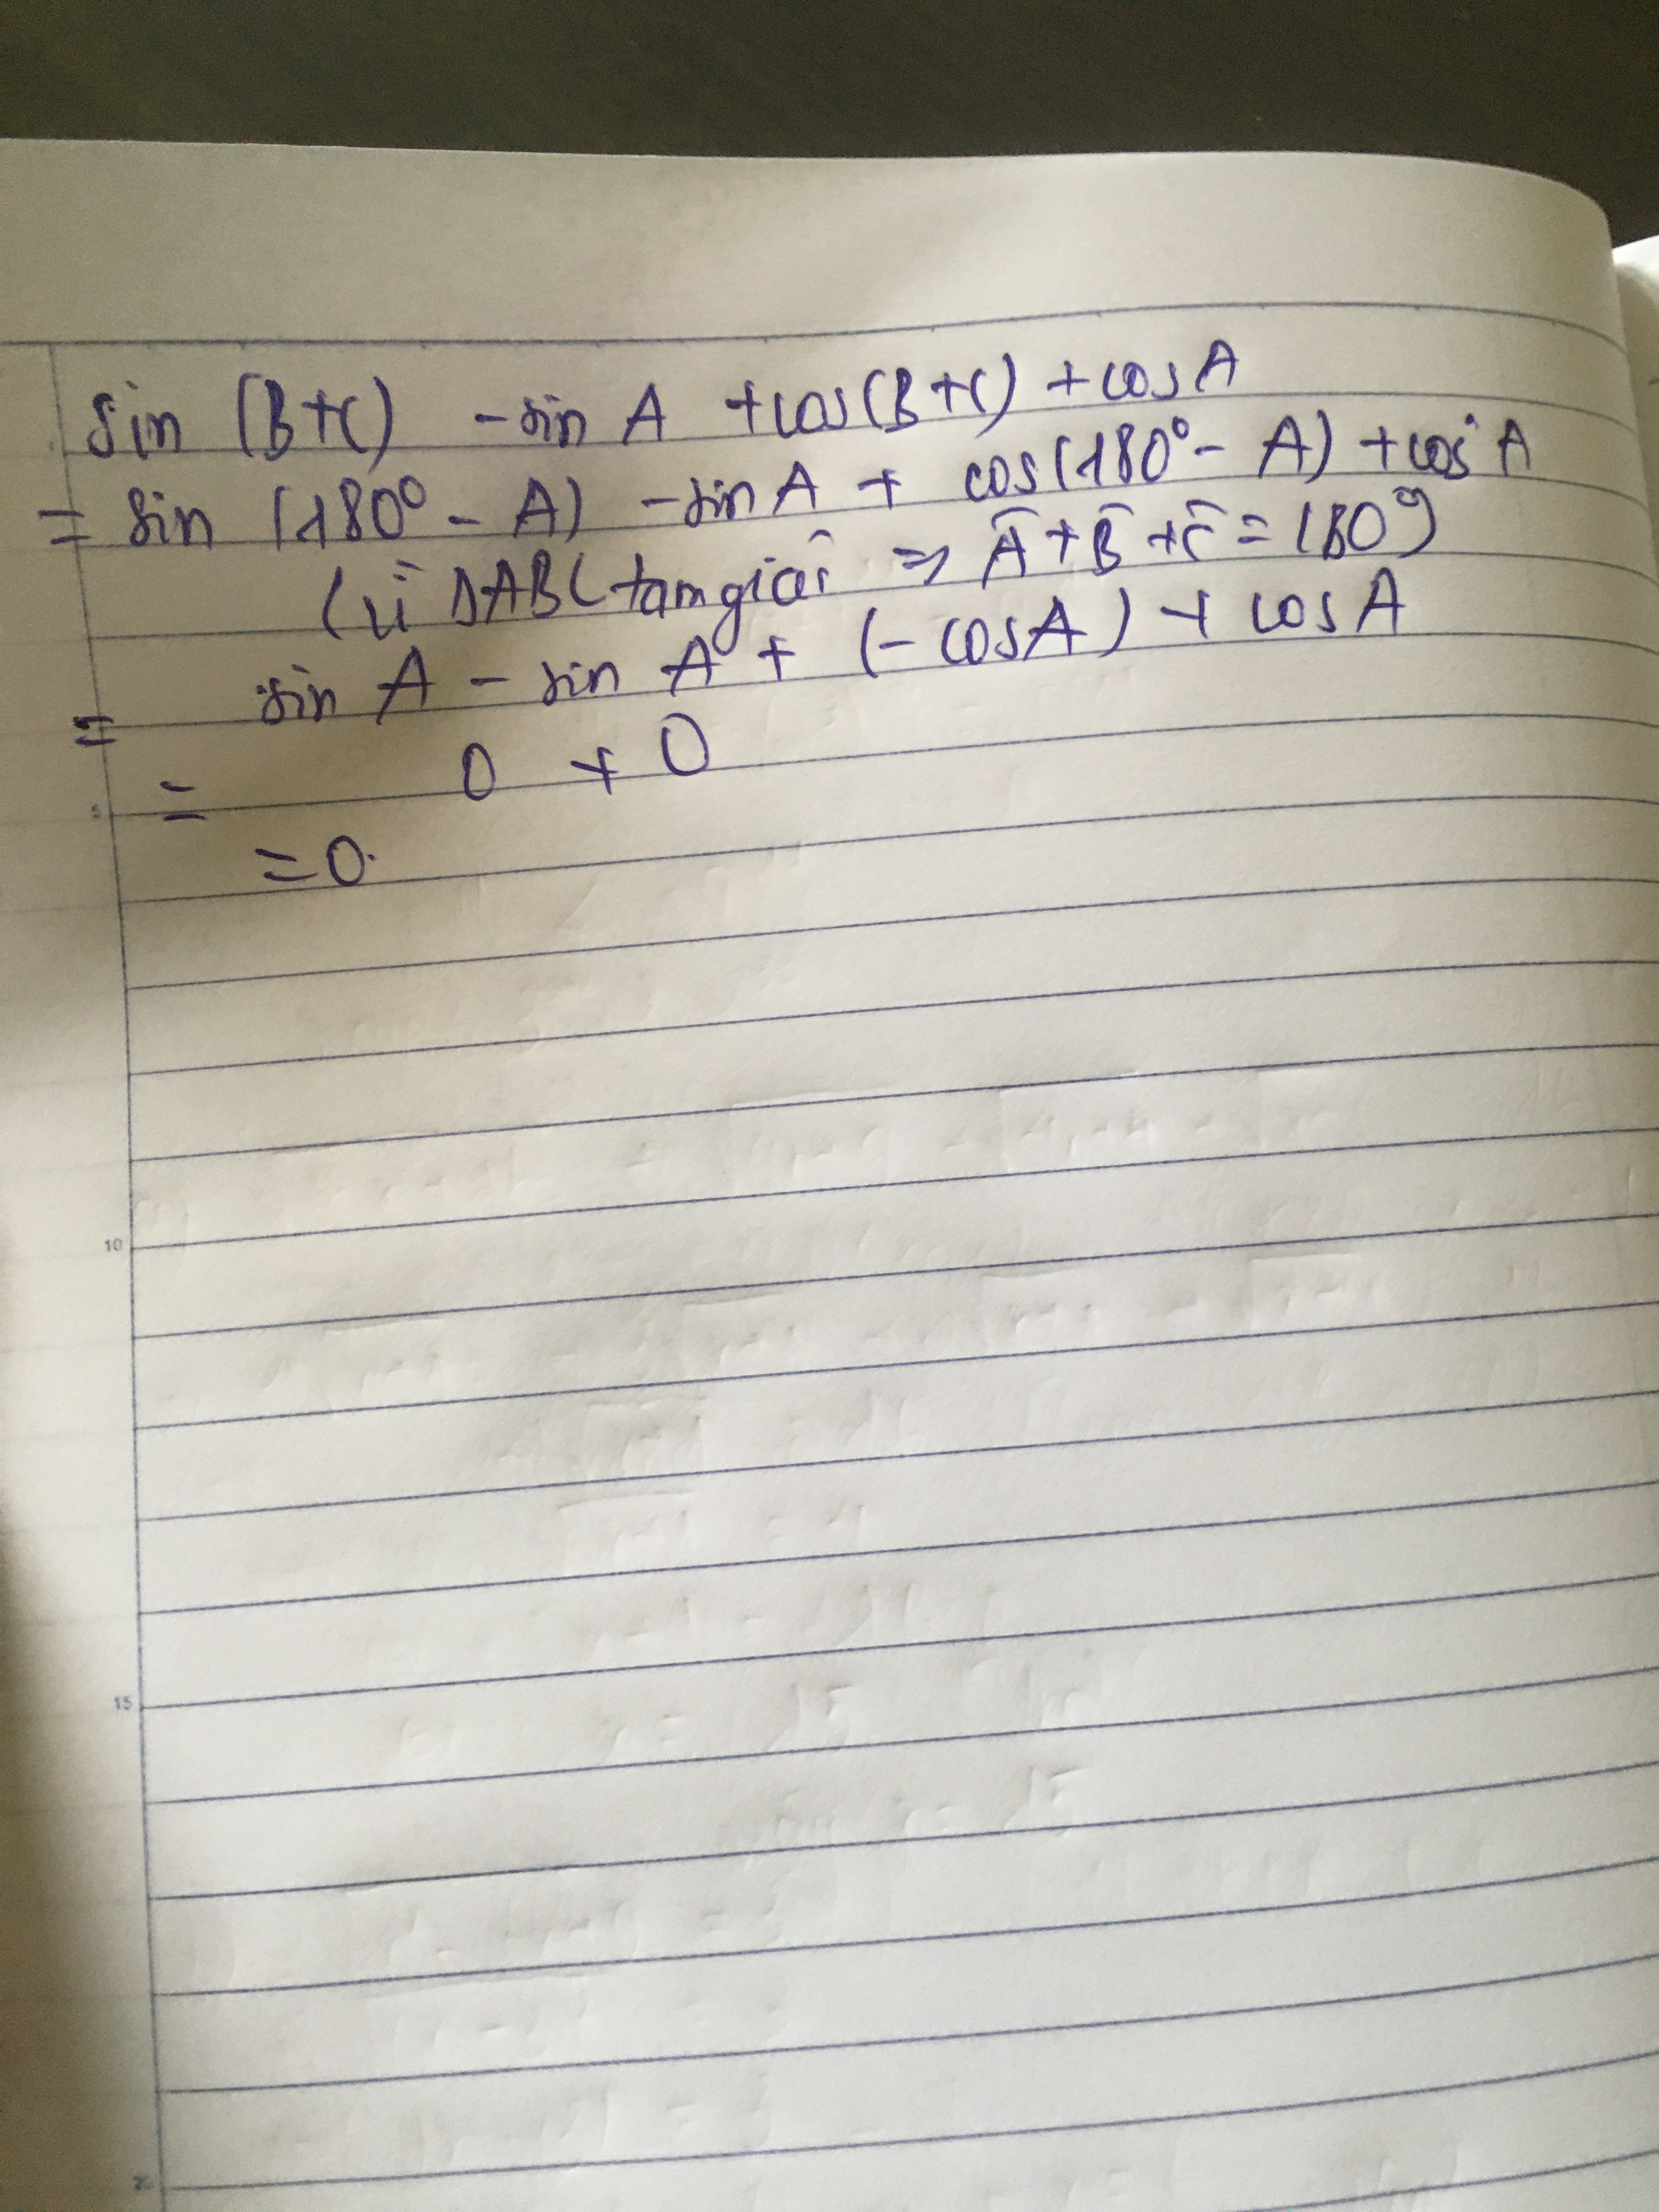 sin (B+C) - sin A + cos(B+C) + cos A
= sin (180° - A) - sin A + cos(180° - A) + cos A
(vì ΔABC tam giác => Â + B̂ + Ĉ = 180°)
= sin A - sin A + (-cos A) + cos A
5
= 0 + 0
= 0.
10
15
20